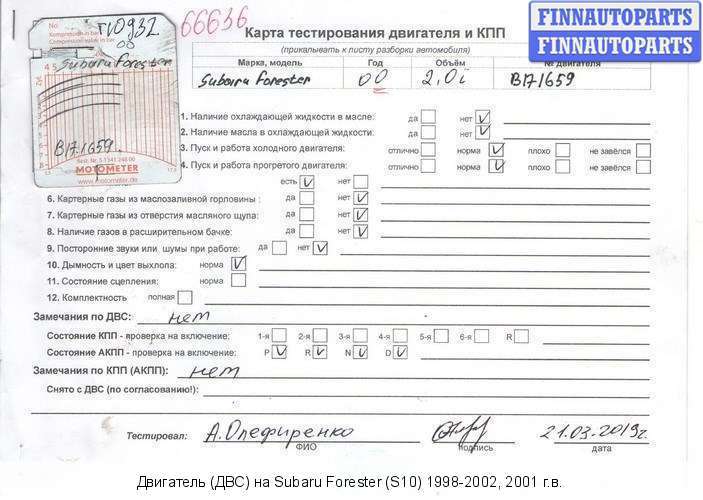 No. TV0932
Kompression in bar
66636
Карта тестирования двигателя и КПП
(прикалывать к листу разборки автомобиля)
FINNAUTOPARTS
FINNAUTOPARTS
00
Subaru Forester
В171659.
MOTOMETER
www.motometer.de
Марка, модель Год Объём № двигателя
Subaru Forester 00 2,0i В171659
1. Наличие охлаждающей жидкости в масле: да нет V
2. Наличие масла в охлаждающей жидкости: да нет V
3. Пуск и работа холодного двигателя: отлично норма V плохо не завёлся
4. Пуск и работа прогретого двигателя: отлично норма V плохо не завёлся
есть V нет
6. Картерные газы из маслозаливной горловины : да нет V
7. Картерные газы из отверстия масляного щупа: да нет V
8. Наличие газов в расширительном бачке: да нет V
9. Посторонние звуки или шумы при работе: да нет V
10. Дымность и цвет выхлопа: норма V
11. Состояние сцепления: норма
12. Комплектность полная
Замечания по ДВС: нет
Состояние КПП - проверка на включение: 1-я 2-я 3-я 4-я 5-я 6-я R
Состояние АКПП - проверка на включение: P V R V N V D V
Замечания по КПП (АКПП): нет
Снято с ДВС (по согласованию!):
Тестировал: А.Олефиренко 21.03.2019г.
ФИО подпись дата
Двигатель (ДВС) на Subaru Forester (S10) 1998-2002, 2001 г.в.